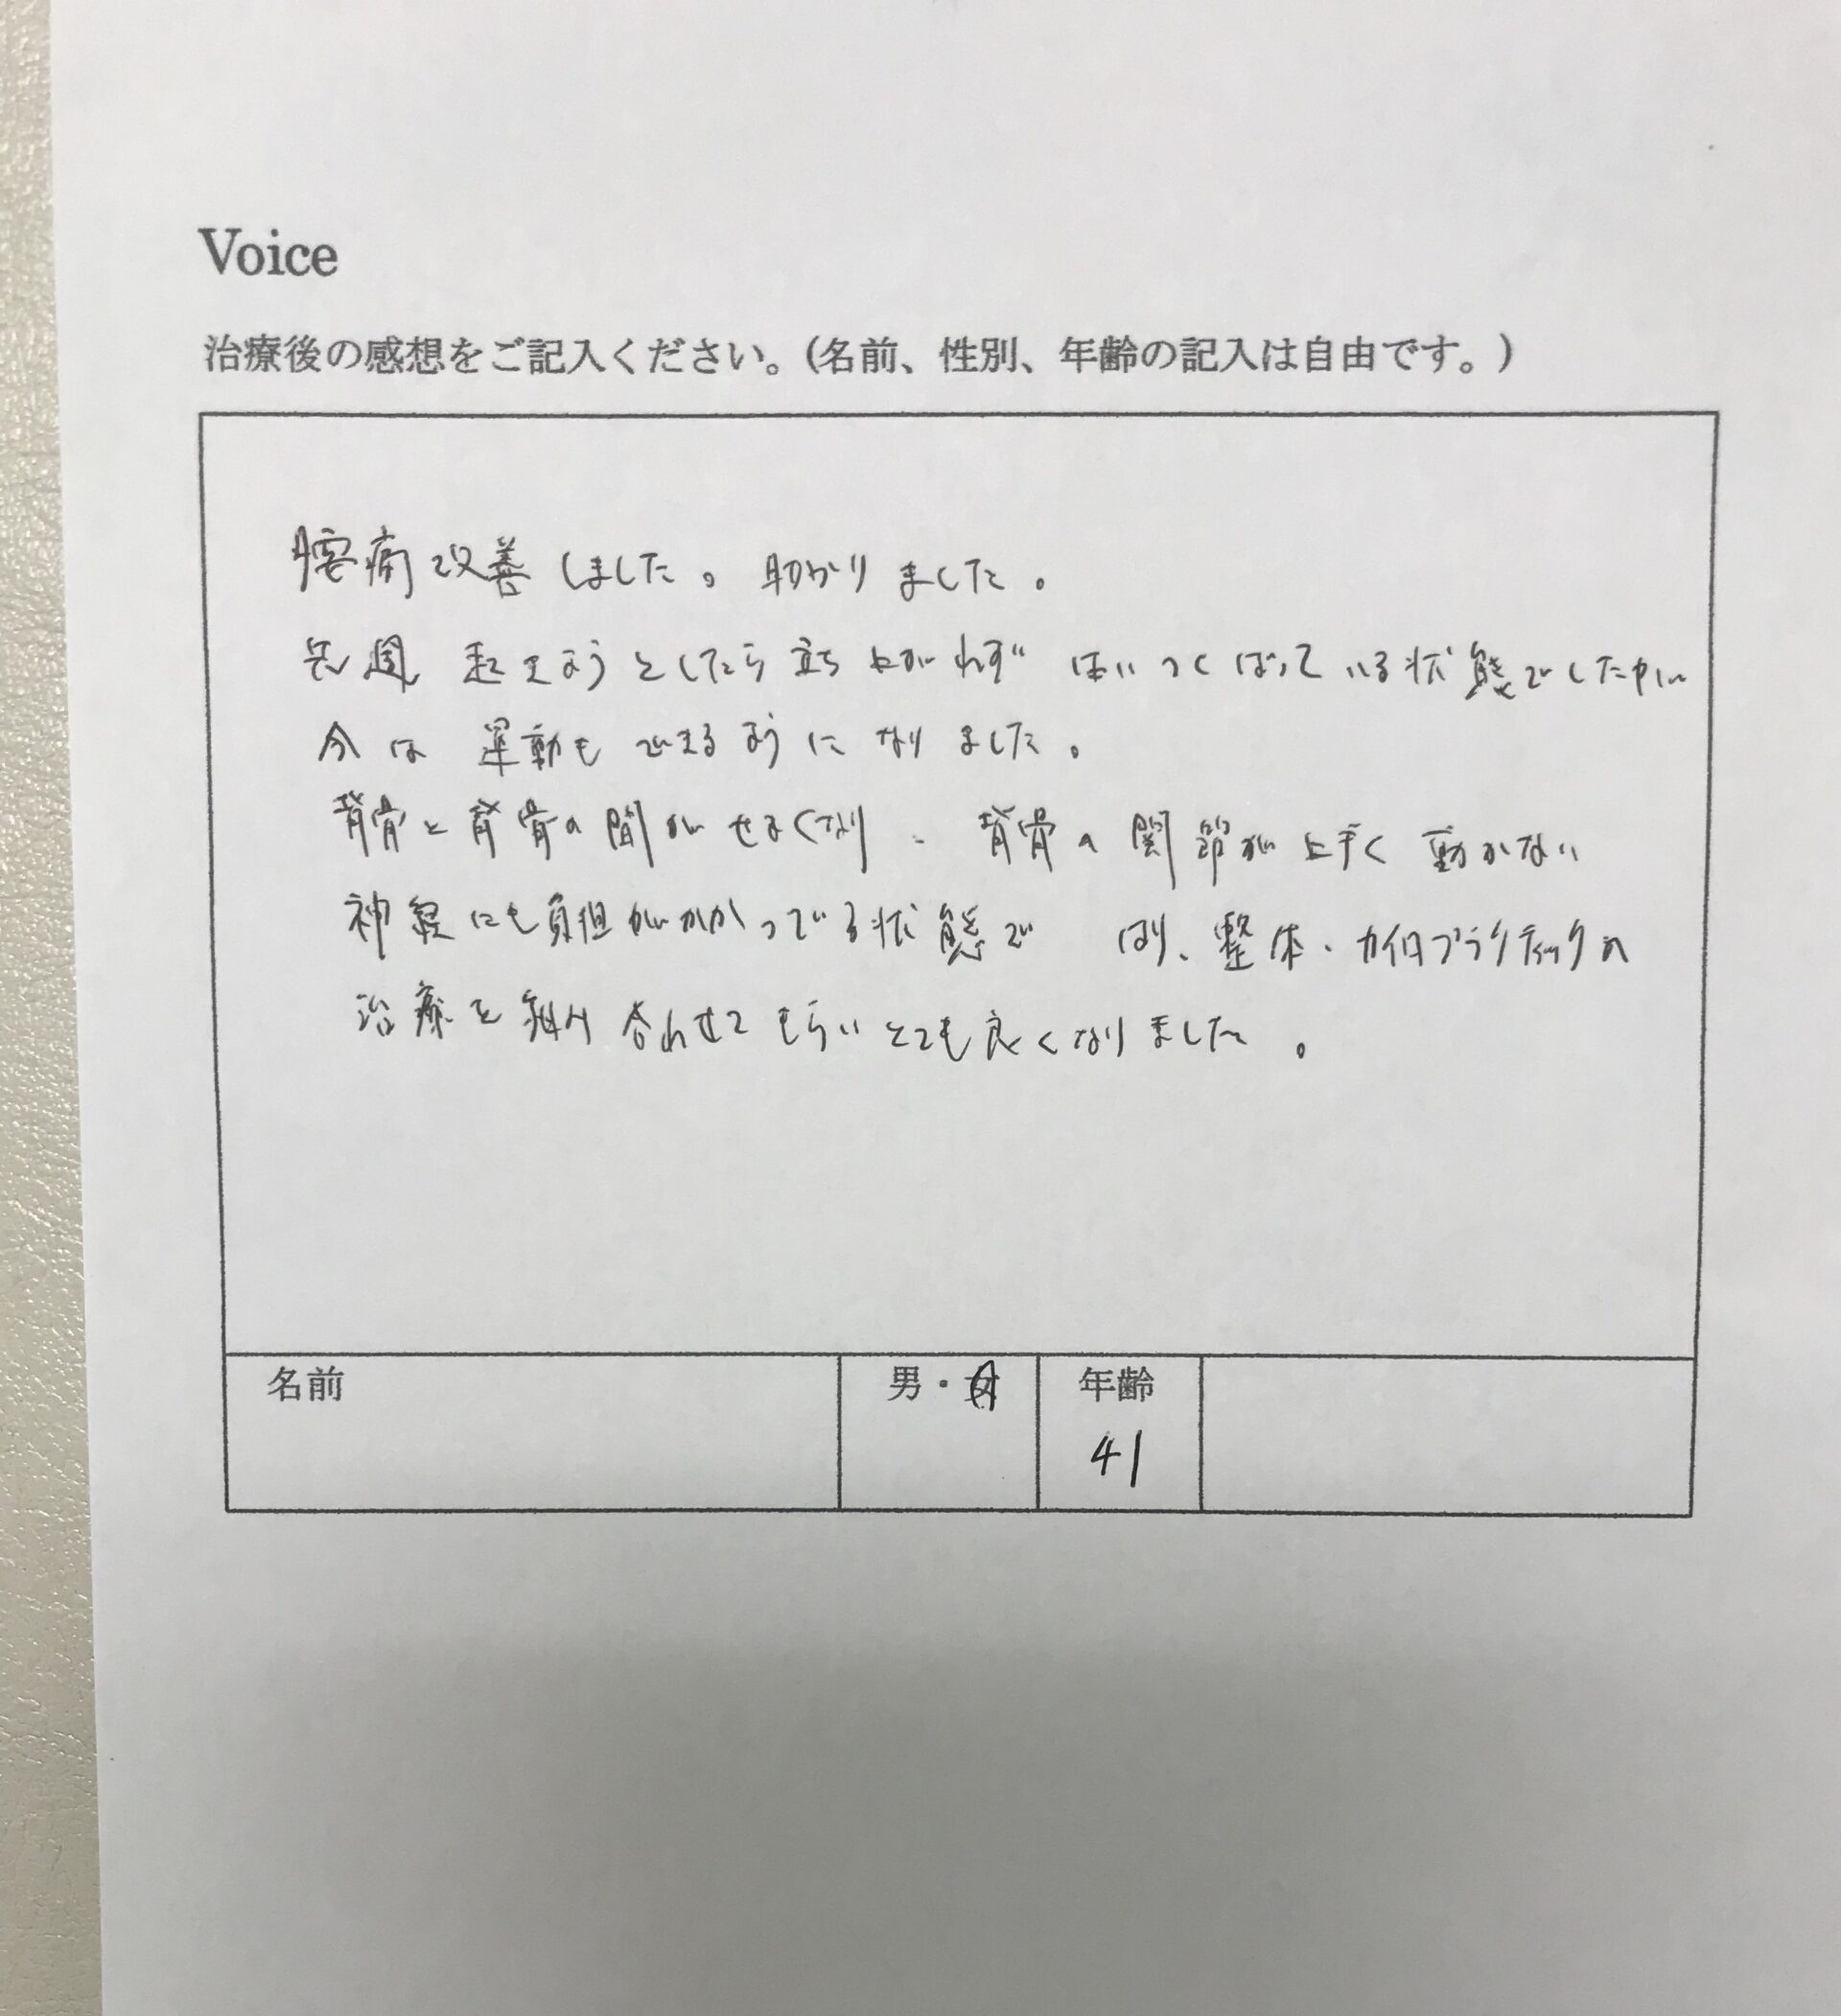 Voice
治療後の感想をご記入ください。(名前、性別、年齢の記入は自由です。)
腰痛改善しました。助かりました。
先週 起きようとしたら立ち上がれず はいつくばっている状態でしたが
今は 運動もできるようになりました。
背骨と背骨の間がせまくなり、背骨の関節が上手く動かない
神経にも負担がかかっている状態で はり、整体・カイロプラクティックの
治療を組み合わせてもらいとても良くなりました。
名前 男・女 年齢
41